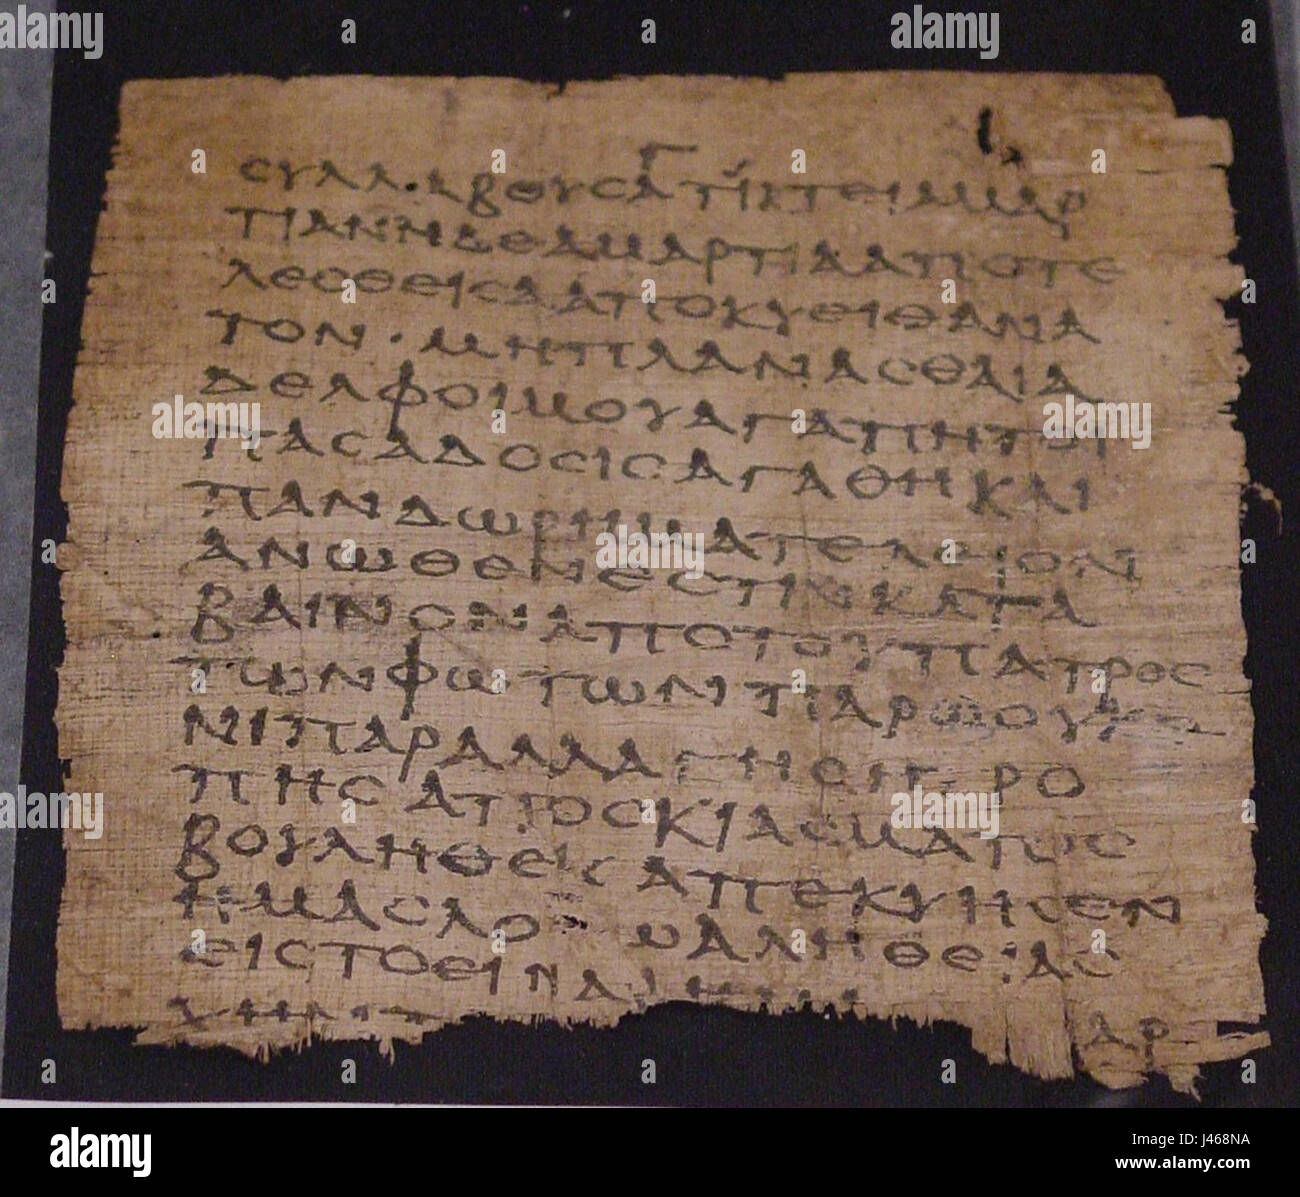 ϹΥΛΛ·ΑΒΟΥϹΑΤΙΚΤΕΙΑΜΑΡ
ΤΙΑΝΗΔΕΑΜΑΡΤΙΑΑΠΟΤΕ
ΛΕϹΘΕΙϹΑΑΠΟΚΥΕΙΘΑΝΑ
ΤΟΝ·ΜΗΠΛΑΝΑϹΘΑΙΑ
ΔΕΛΦΟΙΜΟΥΑΓΑΠΗΤΟΙ
ΠΑϹΑΔΟϹΙϹΑΓΑΘΗΚΑΙ
ΠΑΝΔΩΡΗΜΑΤΕΛΕΙΟΝ
ΑΝΩΘΕΝΕϹΤΙΝΚΑΤΑ
ΒΑΙΝΟΝΑΠΟΤΟΥΠΑΤΡΟϹ
ΤΩΝΦΩΤΩΝΠΑΡΩΟΥΚ
ΝΙΠΑΡΑΛΛΑΓΗϹΗΤΡΟ
ΠΗϹΑΠΟϹΚΙΑϹΜΑΤΟϹ
ΒΟΥΛΗΘΕΙϹΑΠΕΚΥΗϹΕΝ
ΗΜΑϹΛΟΩΑΛΗΘΕΙΑϹ
ΕΙϹΤΟΕΙΝΑΙΗ
ΑΡ
alamy
J468NA
www.alamy.com